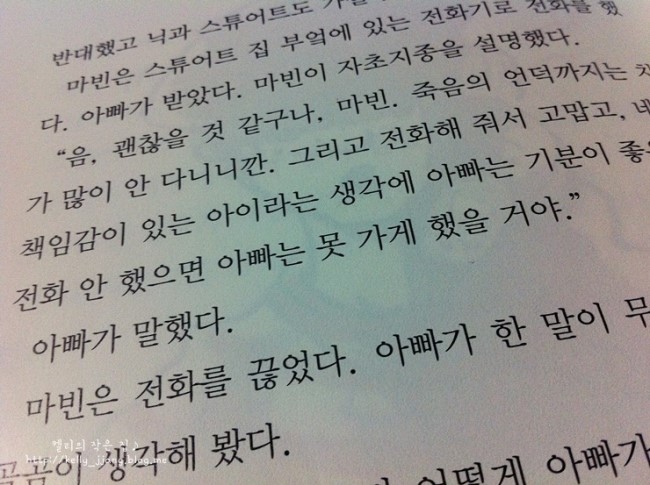 반대했고 닉과 스튜어트도
마빈은 스튜어트 집 부엌에 있는 전화기로 전화를 했
다. 아빠가 받았다. 마빈이 자초지종을 설명했다.
“음, 괜찮을 것 같구나, 마빈. 죽음의 언덕까지는 차
가 많이 안 다니니깐. 그리고 전화해 줘서 고맙고, 네
책임감이 있는 아이라는 생각에 아빠는 기분이
전화 안 했으면 아빠는 못 가게 했을 거야.”
아빠가 말했다.
마빈은 전화를 끊었다. 아빠가 한 말이
곰곰이 생각해 봤다.
어떻게 아빠가
켈리의 작은 집♪
http://kelly_jjang.blog.me